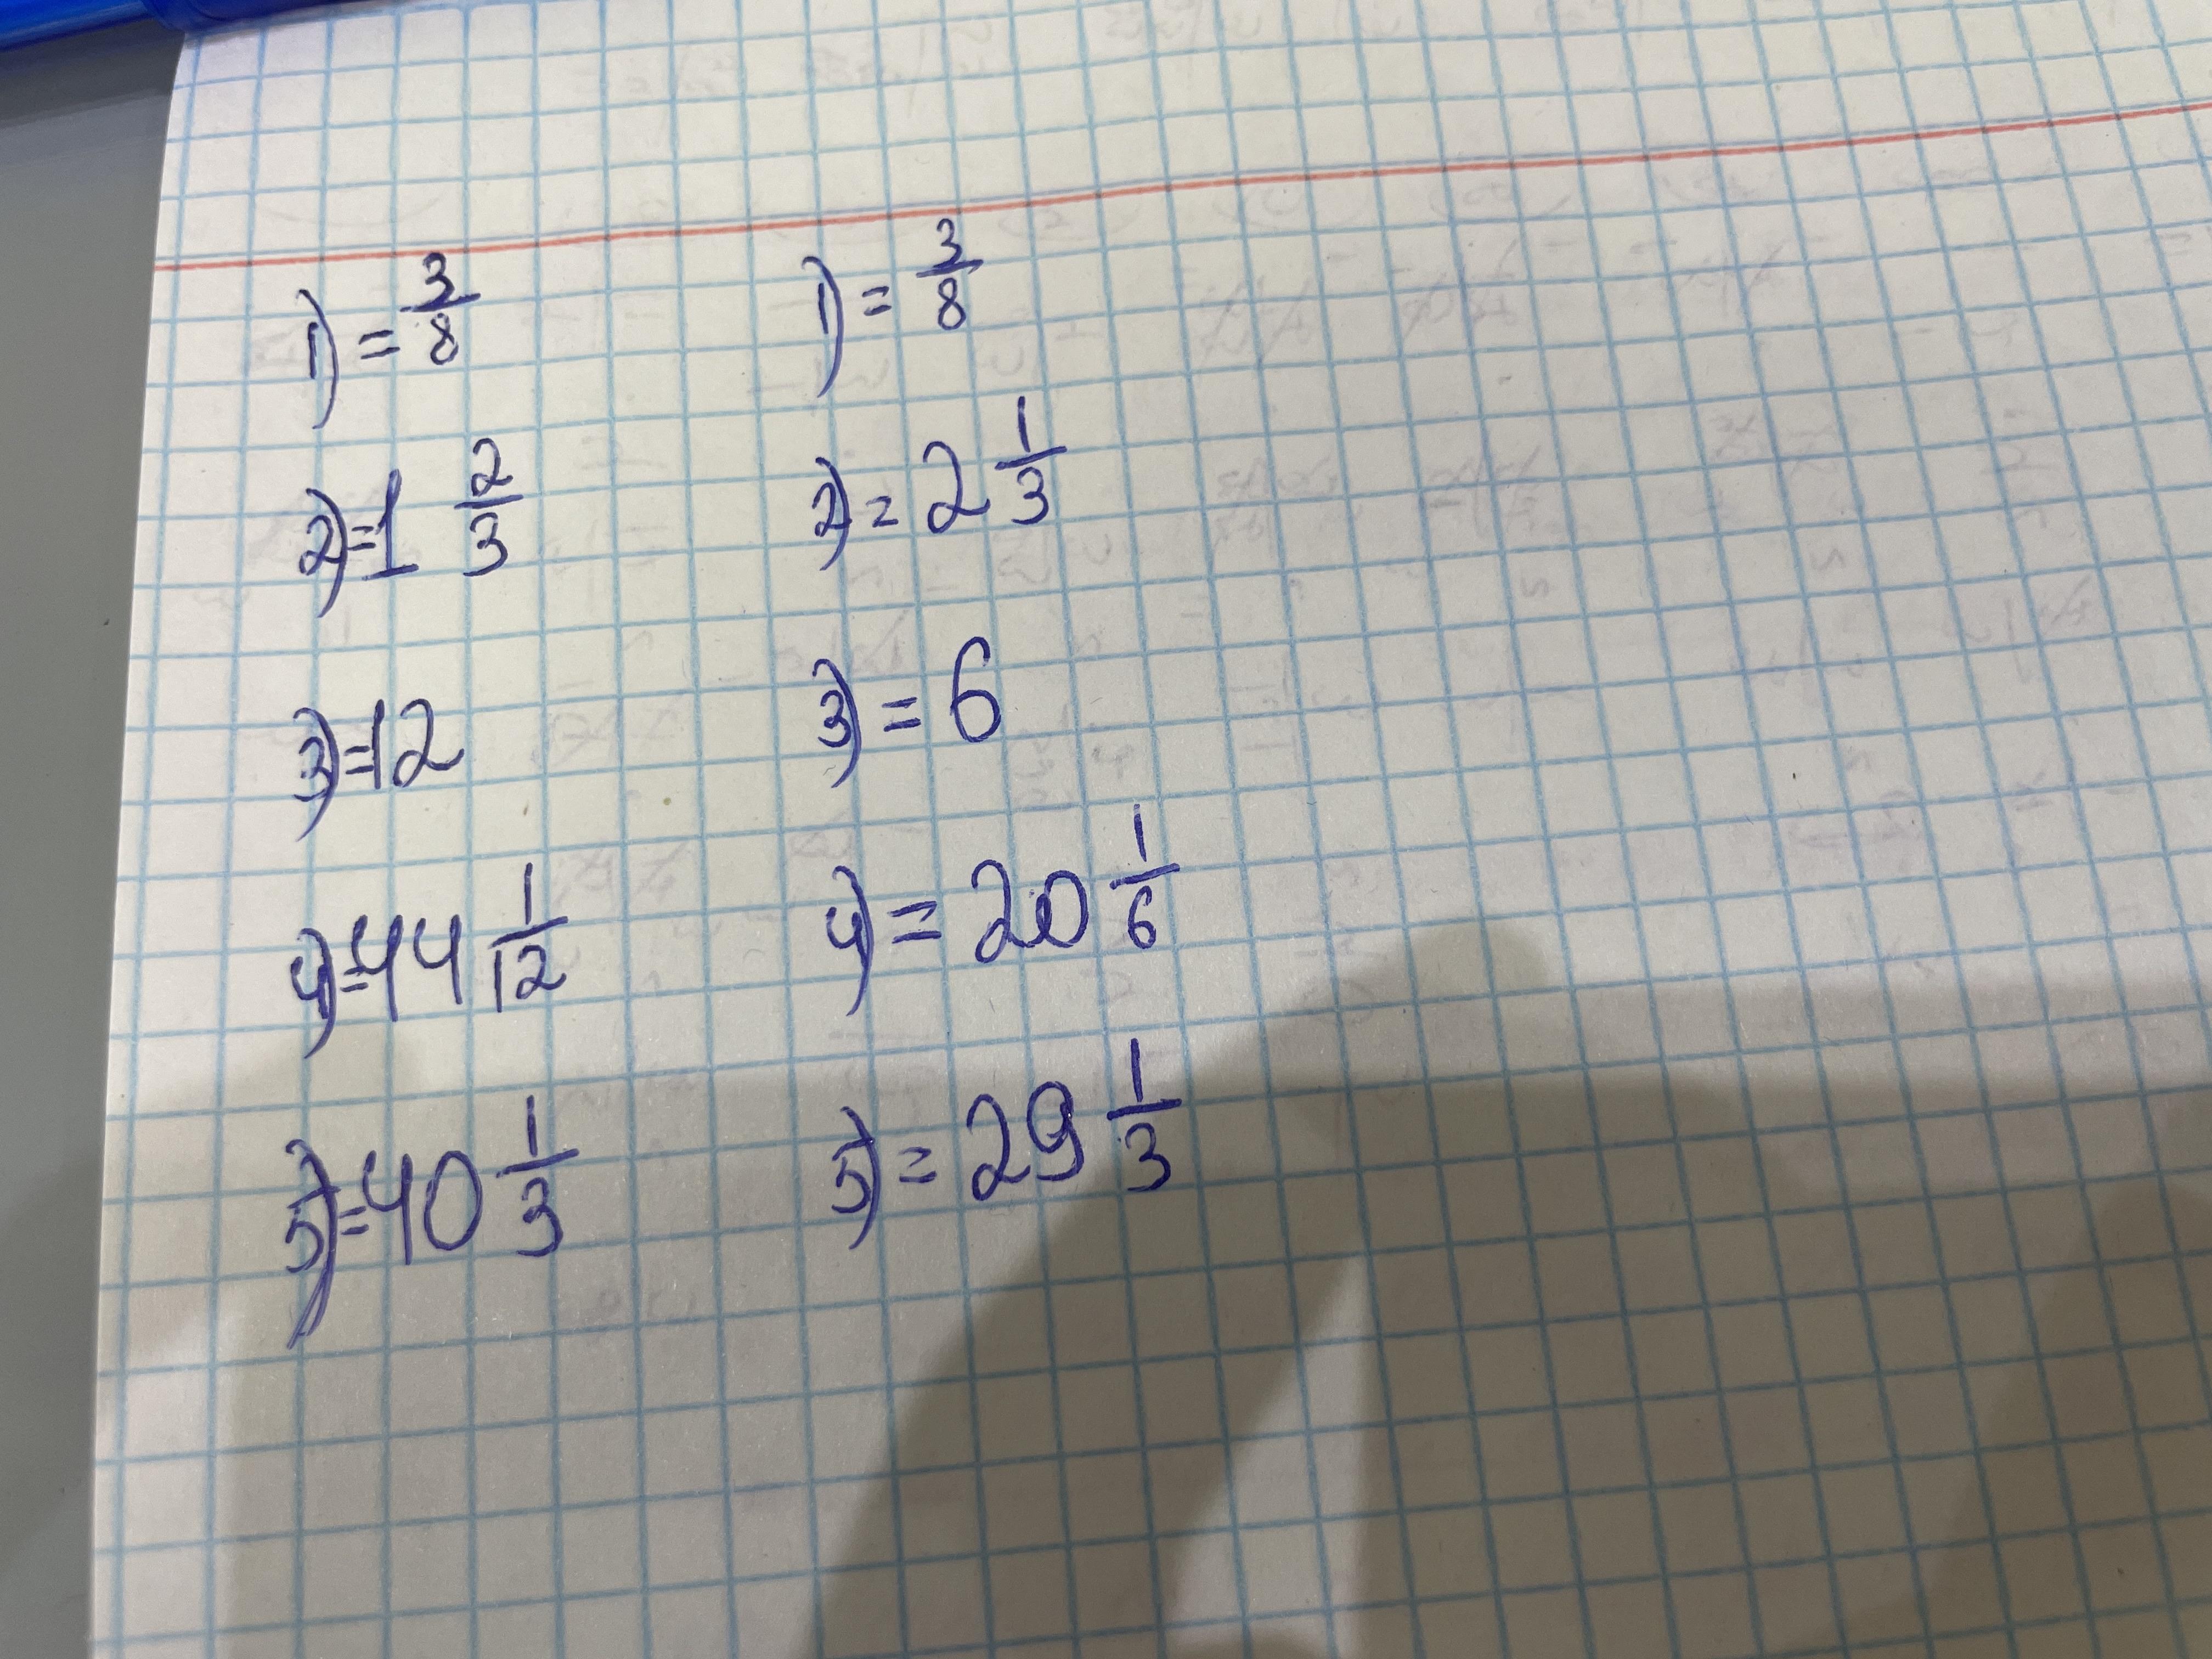 1) = 3/8
2) = 1 2/3
3) = 12
4) = 44 1/12
5) = 40 1/3
1) = 3/8
2) = 2 1/3
3) = 6
4) = 20 1/6
5) = 29 1/3